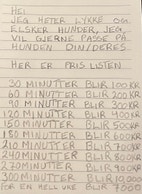 HEI
JEG HETER LYKKE OG
ELSKER HUNDER, JEG
VIL GJERNE PASSE PÅ
HUNDEN DIN/DERES
HER ER PRIS LISTEN
30 MINUTTER BLIR 100 KR
60 MINUTTER BLIR 200 KR
90 MINUTTER BLIR 300 KR
120 MINUTTER BLIR 400 KR
150 MINUTTER BLIR 500 KR
180 MINUTTER BLIR 600 KR
210 MINUTTER BLIR 700 KR
240 MINUTTER BLIR 800 KR
270 MINUTTER BLIR 900 KR
300 MINUTTER BLIR
FOR EN HELL UKE BLIR 7000